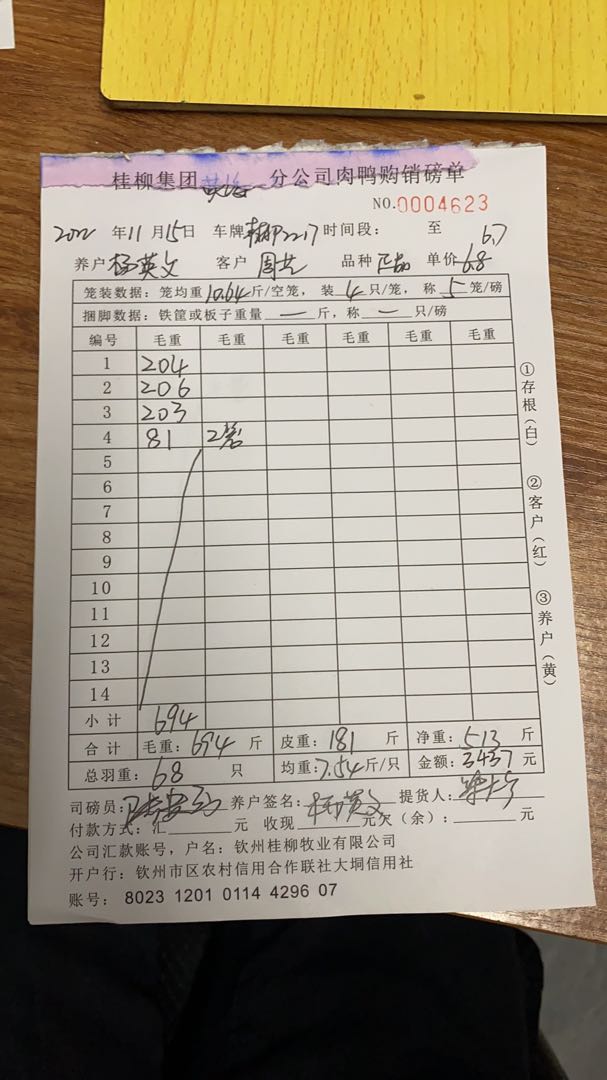 桂柳集团 分公司肉鸭购销磅单
NO.0004623
2022年11月15日 车牌 2217 时间段: 至
6.7
养户 杨英文 客户 周 品种 正品 单价 6.8
笼装数据: 笼均重10.64斤/空笼, 装4只/笼, 称5笼/磅
捆脚数据: 铁筐或板子重量 — 斤, 称 — 只/磅
编号 毛重 毛重 毛重 毛重 毛重 毛重
1 204
2 206
3 203
4 81 2笼
5
6
7
8
9
10
11
12
13
14
小计 694
合计 毛重: 694 斤 皮重: 181 斤 净重: 513 斤
总羽重: 68 只 均重: 7.54斤/只 金额: 3437 元
司磅员: 养户签名: 杨英文 提货人:
付款方式: 汇 元 收现 元欠(余): 元
公司汇款账号, 户名: 钦州桂柳牧业有限公司
开户行: 钦州市区农村信用合作联社大垌信用社
账号: 8023 1201 0114 4296 07
①存根(白)
②客户(红)
③养户(黄)